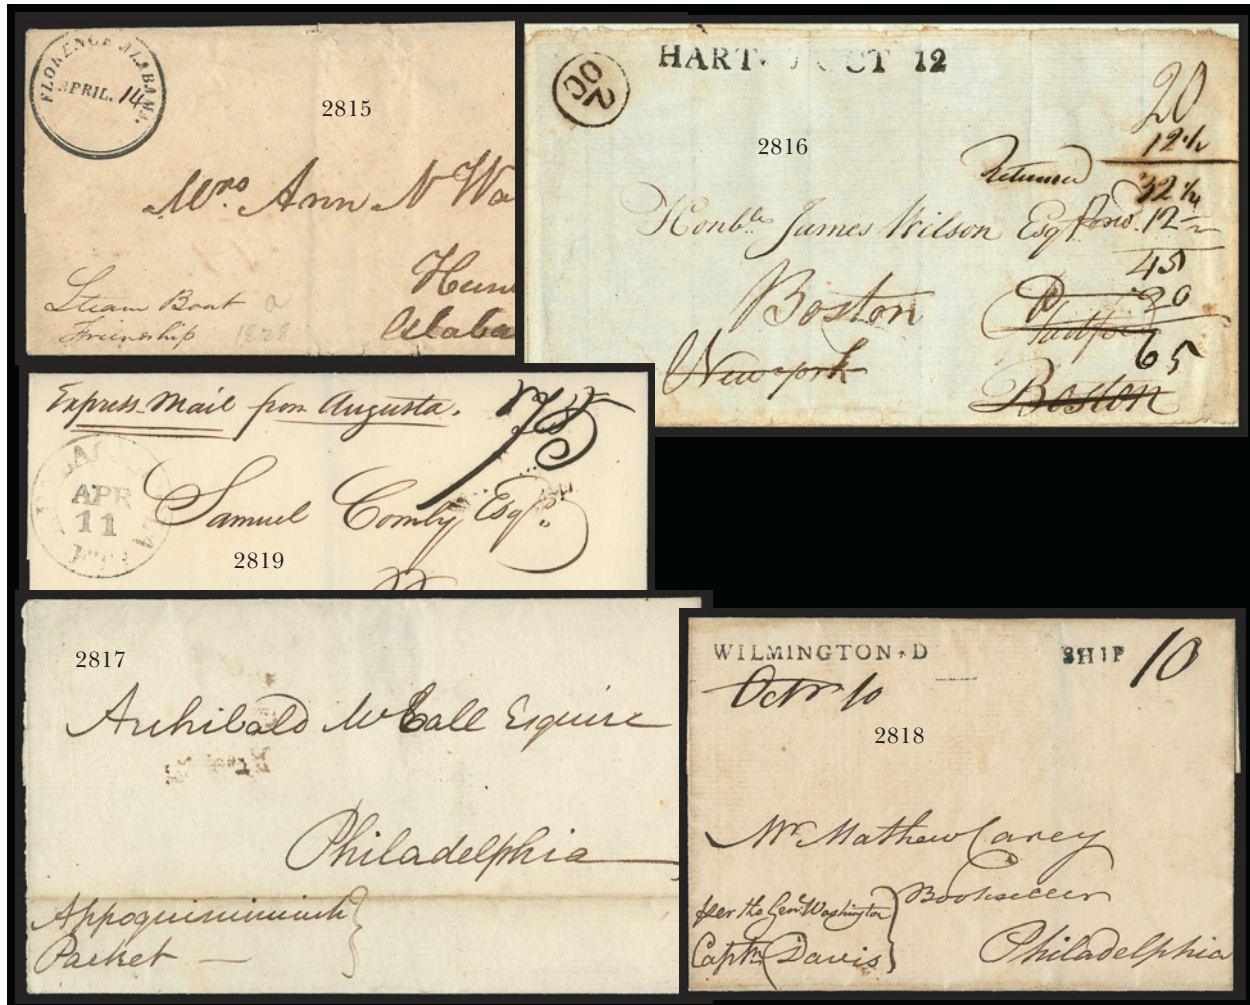 FLORENCE ALABAMA.
APRIL. 14
2815
Mrs. Ann N Wa
Steam Boat a
Friendship 1828
Alaba
HART OCT 12
20
2816
20
12 1/2
Returned
32 1/2
Honble James Wilson Esq Forwd. 12
45
Boston
20
New york
Hartford
65
Boston
Express Mail from Augusta.
75
APR
11
Samuel Comly Esqr.
2819
2817
Archibald McCall Esquire
Philadelphia
Appoquinimink
Packet
WILMINGTON. D
SHIP 10
Octr. 10
2818
Mr Mathew Carey
Bookseller
per the Genl. Washington
Captn Davis
Philadelphia